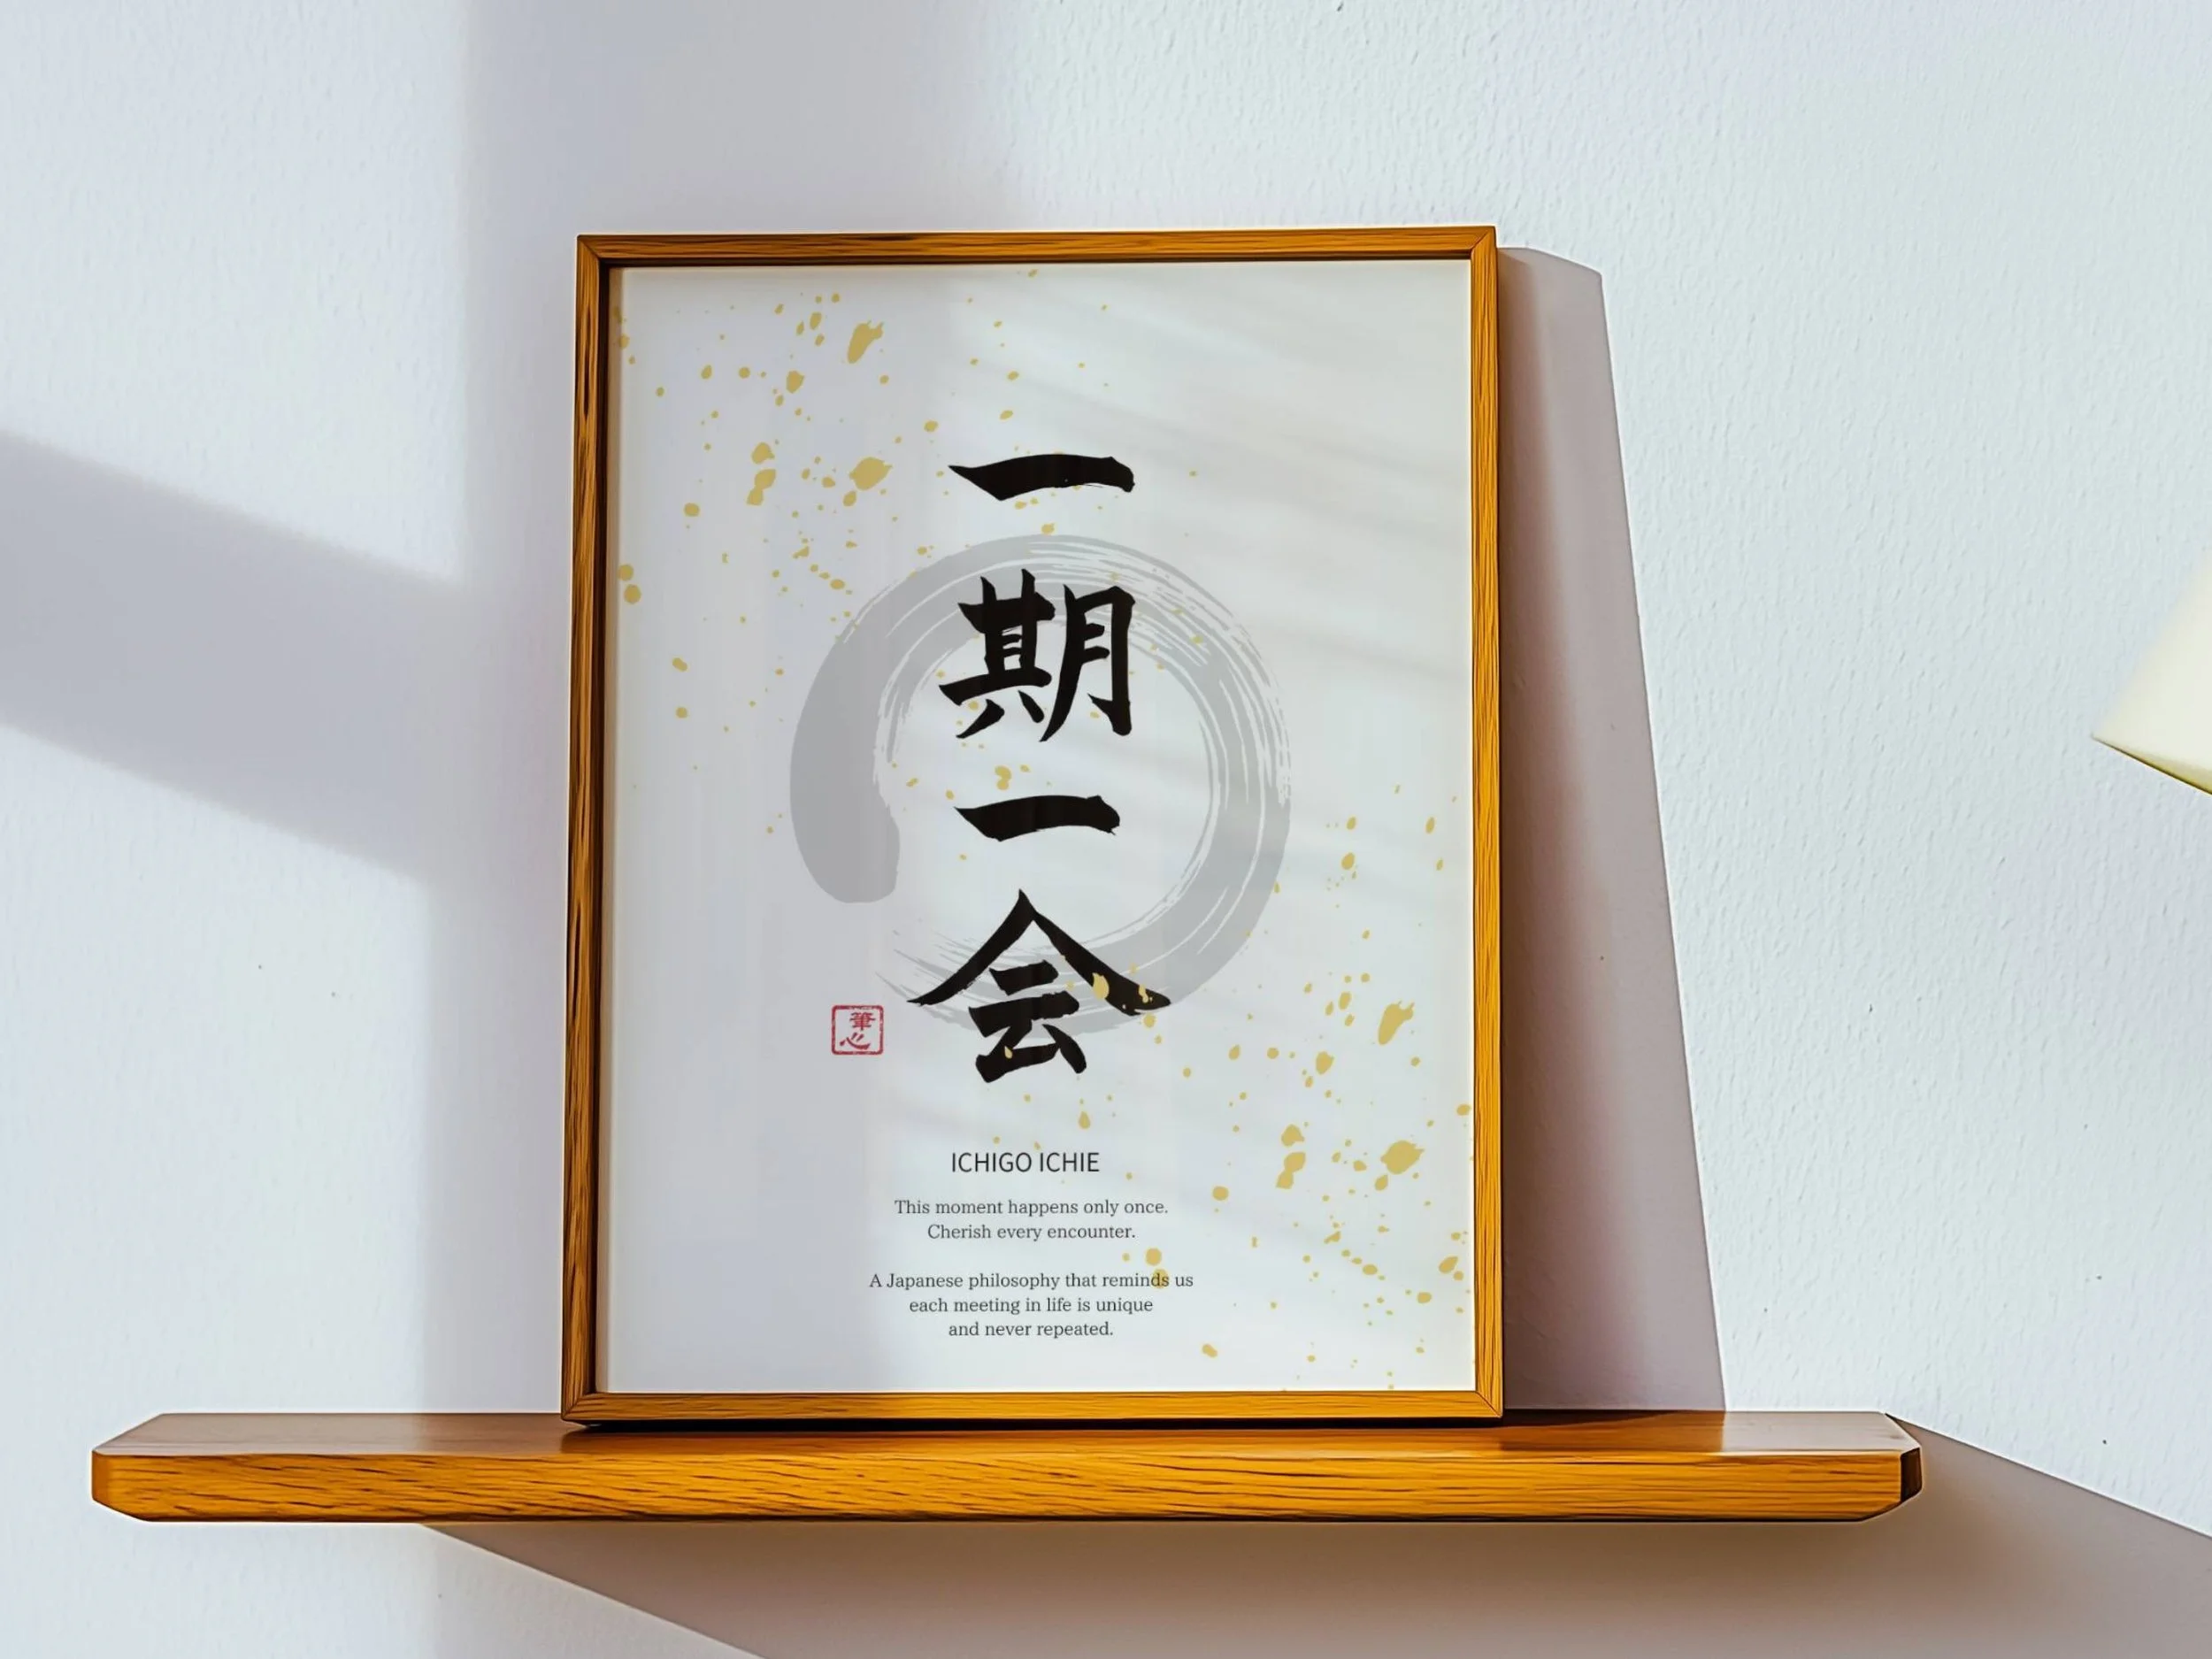 一期一会
筆心
ICHIGO ICHIE
This moment happens only once.
Cherish every encounter.
A Japanese philosophy that reminds us
each meeting in life is unique
and never repeated.